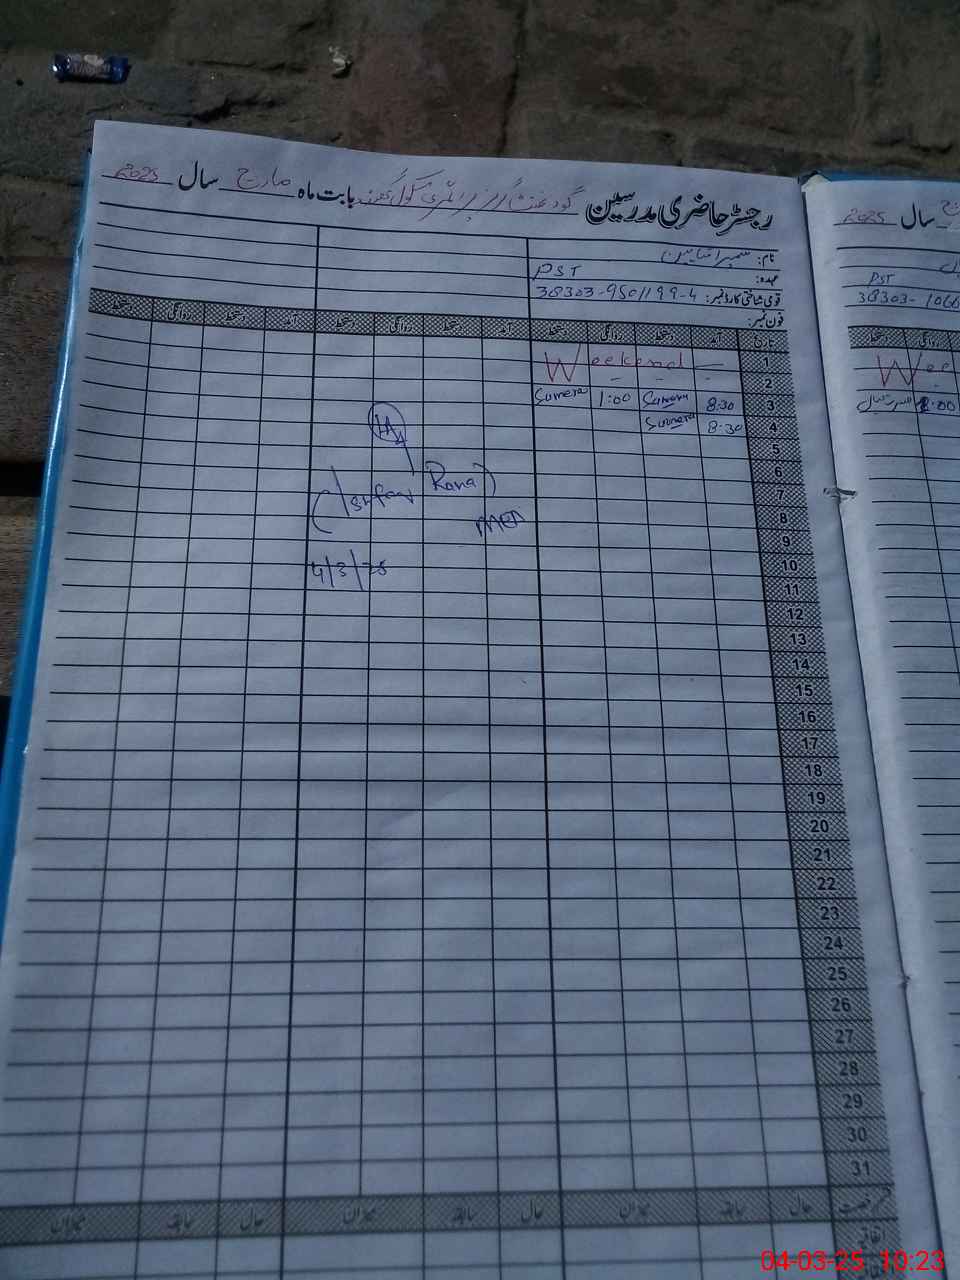 رجسٹر حاضری مدرسین گورنمنٹ گرلز پرائمری سکول بابت ماہ مارچ سال 2025
نام:
عہدہ: PST
قومی شناختی کارڈ نمبر: 38303-9501199-4
فون نمبر:
تاریخ آمد دستخط روانگی دستخط آمد دستخط روانگی دستخط آمد دستخط روانگی دستخط
1 Weekend
2
3 8:30 Sumera 1:00 Sumera
4 8:30 Sumera
5
6
7
8
9
10
11
12
13
14
15
16
17
18
19
20
21
22
23
24
25
26
27
28
29
30
31
(Isrfan Rana)
MEA
4/3/25
قسم رخصت حال سابقہ میزان حال سابقہ میزان حال سابقہ میزان
اتفاقیہ
سال 2025
PST
38303-
روانگی دستخط
Wee
2:00
04-03-25 10:23